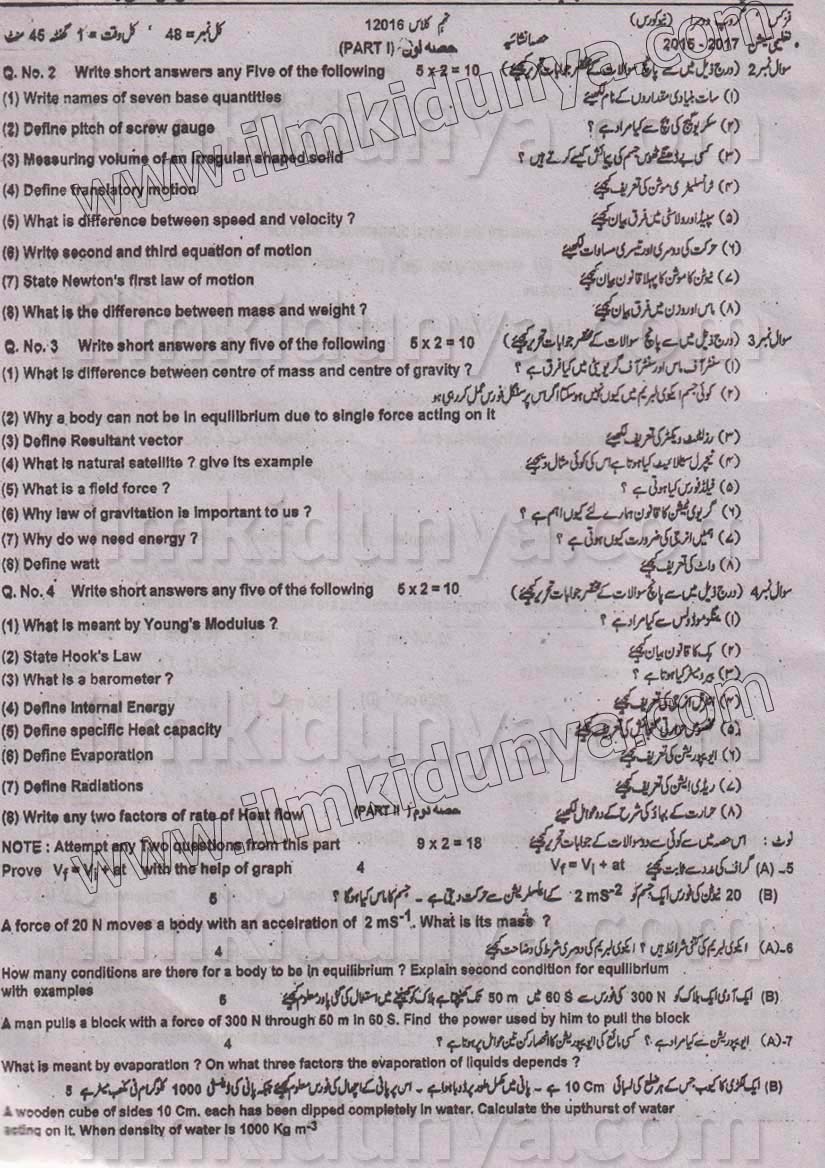 فزکس گروپ دوسرا (نیو کورس) نہم کلاس 12016 کل نمبر = 48 ، کل وقت = 1 گھنٹہ 45 منٹ
تعلیمی سیشن 2015 - 2017 حصہ انشائیہ حصہ اول (PART I)
Q. No. 2 Write short answers any Five of the following 5 x 2 = 10 سوال نمبر 2 (درج ذیل میں سے پانچ سوالات کے مختصر جوابات تحریر کیجئے)
(1) Write names of seven base quantities (۱) سات بنیادی مقداروں کے نام لکھیئے
(2) Define pitch of screw gauge (۲) سکریو گیج کی پچ سے کیا مراد ہے ؟
(3) Measuring volume of an irregular shaped solid (۳) کسی بے ڈھنگے ٹھوس جسم کی پیمائش کیسے کرتے ہیں ؟
(4) Define translatory motion (۴) ٹرانسلیٹری موشن کی تعریف کیجئے
(5) What is difference between speed and velocity ? (۵) سپیڈ اور ولاسٹی میں فرق بیان کیجئے
(6) Write second and third equation of motion (۶) حرکت کی دوسری اور تیسری مساوات لکھیئے
(7) State Newton's first law of motion (۷) نیوٹن کا موشن کا پہلا قانون بیان کیجئے
(8) What is the difference between mass and weight ? (۸) ماس اور وزن میں فرق بیان کیجئے
Q. No. 3 Write short answers any five of the following 5 x 2 = 10 سوال نمبر 3 (درج ذیل میں سے پانچ سوالات کے مختصر جوابات تحریر کیجئے)
(1) What is difference between centre of mass and centre of gravity ? (۱) سنٹر آف ماس اور سنٹر آف گریویٹی میں کیا فرق ہے ؟
(۲) کوئی جسم ایکوی لبریم میں کیوں نہیں ہو سکتا اگر اس پر سنگل فورس عمل کر رہی ہو
(2) Why a body can not be in equilibrium due to single force acting on it
(3) Define Resultant vector (۳) رزلٹنٹ ویکٹر کی تعریف لکھیئے
(4) What is natural satellite ? give its example (۴) نیچرل سیٹلائیٹ کیا ہوتا ہے اس کی کوئی مثال دیجئے
(5) What is a field force ? (۵) فیلڈ فورس کیا ہوتی ہے ؟
(6) Why law of gravitation is important to us ? (۶) گریوی ٹیشن کا قانون ہمارے لئے کیوں اہم ہے ؟
(7) Why do we need energy ? (۷) ہمیں انرجی کی ضرورت کیوں ہوتی ہے ؟
(8) Define watt (۸) واٹ کی تعریف کیجئے
Q. No. 4 Write short answers any five of the following 5 x 2 = 10 سوال نمبر 4 (درج ذیل میں سے پانچ سوالات کے مختصر جوابات تحریر کیجئے)
(1) What is meant by Young's Modulus ? (۱) ینگز موڈولس سے کیا مراد ہے ؟
(2) State Hook's Law (۲) ہک کا قانون بیان کیجئے
(3) What is a barometer ? (۳) بیرومیٹر کیا ہوتا ہے ؟
(4) Define Internal Energy (۴) انٹرنل انرجی کی تعریف کیجئے
(5) Define specific Heat capacity (۵) مخصوص حرارتی گنجائش کی تعریف کیجئے
(6) Define Evaporation (۶) ایویپوریشن کی تعریف کیجئے
(7) Define Radiations (۷) ریڈی ایشن کی تعریف کیجئے
(8) Write any two factors of rate of Heat flow (PART II) حصہ دوم (۸) حرارت کے بہاؤ کی شرح کے دو عوامل لکھیئے
NOTE : Attempt any Two questions from this part 9 x 2 = 18 نوٹ : اس حصہ میں سے کوئی سے دو سوالات کے جوابات تحریر کیجئے
Prove Vf = Vi + at with the help of graph 4 5- (A) گراف کی مدد سے ثابت کیجئے Vf = Vi + at
(B) 20 نیوٹن کی فورس ایک جسم کو 2 mS-2 کے ایکسلریشن سے حرکت دیتی ہے - جسم کا ماس کیا ہو گا ؟ 5
A force of 20 N moves a body with an accelration of 2 mS-1. What is its mass ?
6-(A) ایکوی لبریم کی کتنی شرائط ہیں ؟ ایکوی لبریم کی دوسری شرط کی وضاحت کیجئے 4
How many conditions are there for a body to be in equilibrium ? Explain second condition for equilibrium
with examples
(B) ایک آدمی ایک بلاک کو 300 N کی فورس سے 60 S میں 50 m تک کھینچتا ہے بلاک کو کھینچنے میں استعمال کی گئی پاور معلوم کیجئے 5
A man pulls a block with a force of 300 N through 50 m in 60 S. Find the power used by him to pull the block
7-(A) ایویپوریشن سے کیا مراد ہے ؟ کسی مائع کی ایویپوریشن کا انحصار کن تین عوامل پر ہوتا ہے ؟ 4
What is meant by evaporation ? On what three factors the evaporation of liquids depends ?
(B) ایک لکڑی کا کیوب جس کے ہر ضلع کی لمبائی 10 Cm ہے - پانی میں مکمل طور پر ڈبویا ہوا ہے - اس پر پانی کے اچھال کی فورس معلوم کیجئے جبکہ پانی کی ڈینسٹی 1000 کلوگرام فی مکعب میٹر ہے 5
A wooden cube of sides 10 Cm. each has been dipped completely in water. Calculate the upthurst of water
acting on it. When density of water is 1000 Kg m-3
www.ilmkidunya.com
www.ilmkidunya.com
ilmkidunya.com
ilmkidunya.com
ilmkidunya.com
ilmkidunya.com
ilmkidunya.com